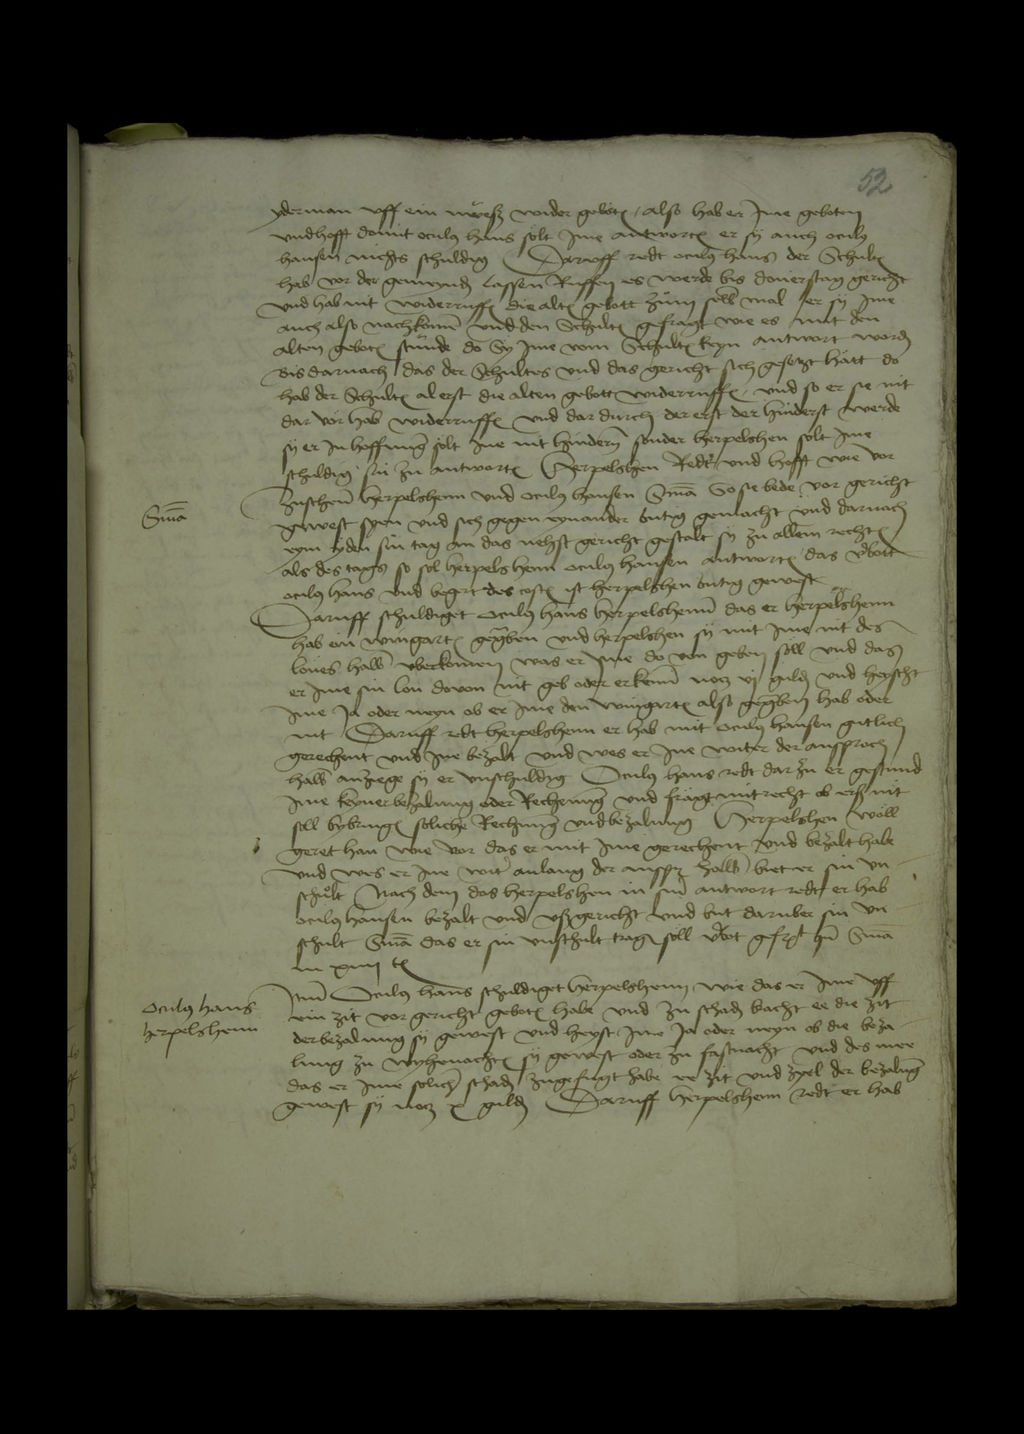 52
yderman uff ein nuwes wider geboten / also hab er Ime geboten
und hofft domit oculus hans solt Ime antworten er sy auch oculus
hansen nichts schuldig Daruff redt oculus hans der Schulteß
hab vor der gemeynde lassen Ruffen es werde bis donerstag gericht
und hab nit widerruffen die alten gebott zum selben mal er sy Ime
auch also nachkomen und den Schulteß gefragt wie es mit den
alten geboten stunde do Sy Ime vom Schulteß keyn antwort worden
Bis darnach das der Schultes und das gericht sich gesetzt hatt do
hab der Schulteß al erst die alten gebott widerruffen / und so er sie nit
dar vor hab widerruffen und dar durch der erst der hinderst werde
sy er In hoffnung solt Ine nit hindern sonder herpelshen solt Ime
schuldig sin zu antworten Herpelshen Redt und hofft wie vor
Sententia
Zuschen Herpelshenn und oculus hansen Sententia So sie bede vor gericht
gewest syen und sich gegen eynander butig gemacht und darnach
eym yden sin tag an das nehst gericht gestalt sy zu allem rechten
als des tages so sol herpelshenn oculus hansen antworten das verbott
oculus hans und begert des costen ist herpelshen butig gewest
Daruff schuldiget oculus hans herpelshenn das er herpelshenn
hab ein wingarten gegeben und herpelshen sy mit Ime nit des
lones halb uberkomen was er Ime do von geben soll und das
er Ime sin lon dovon nit geb oder erkenn noch vj gulden und heyscht
Ime Ja oder neyn ob er Ime den wingarten also gegeben hab oder
nit Daruff redt herpelshenn er hab mit oculus hansen gutlich
gerechent und Ine bezalt und wes er Ine witer der ansproch
halb anziege sy er unschuldig Oculus hans redt dar zu er gestund
Ime keyner bezalung oder Rechenung und fragt mit recht ob erß nit
soll bybringen soliche Rechnung und bezalung Herpelshen woll
geret han wie vor das er mit Ime gerechent und bezalt habe
und wes er Ine witer anlang der ansprach halb biet er sin un-
schult Nach dem das herpelshen in siner antwort redt er hab
oculus hansen bezalt und ußgericht und but daruber sin un
schult Sententia das er sin unschult tragen soll verbot gefragt quando Sententia
in xiiij tagen
oculus hans
herpelshenn
Item Oculus hans schuldiget herpelshenn wie das er Ime uff
ein zit vor gericht geboten habe und Zu schaden bracht ee die zit
der bezalung sy gewest und heyst Ime Ja oder neyn ob die beza-
lung zu wyhenachten sy gewest oder zu fastnacht und des mee
das er Ime solichen schaden zugefugt habe ee zit und zyel der bezalung
gewest sy noch x gulden Daruff herpelshenn redt er hab